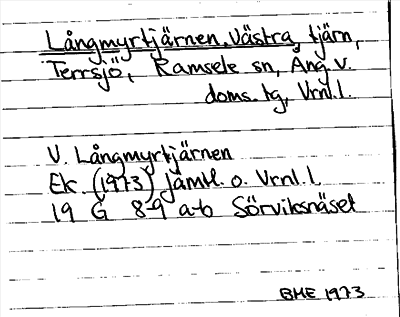 Långmyrtjärnen, Västra, tjärn,
Terrsjö, Ramsele sn, Ång. v.
doms. tg, Vrnl. l.
V. Långmyrtjärnen
Ek. (1973) Jämtl. o. Vrnl. l.
19 G 8-9 a-b Sörviksnäset
BHE 1973